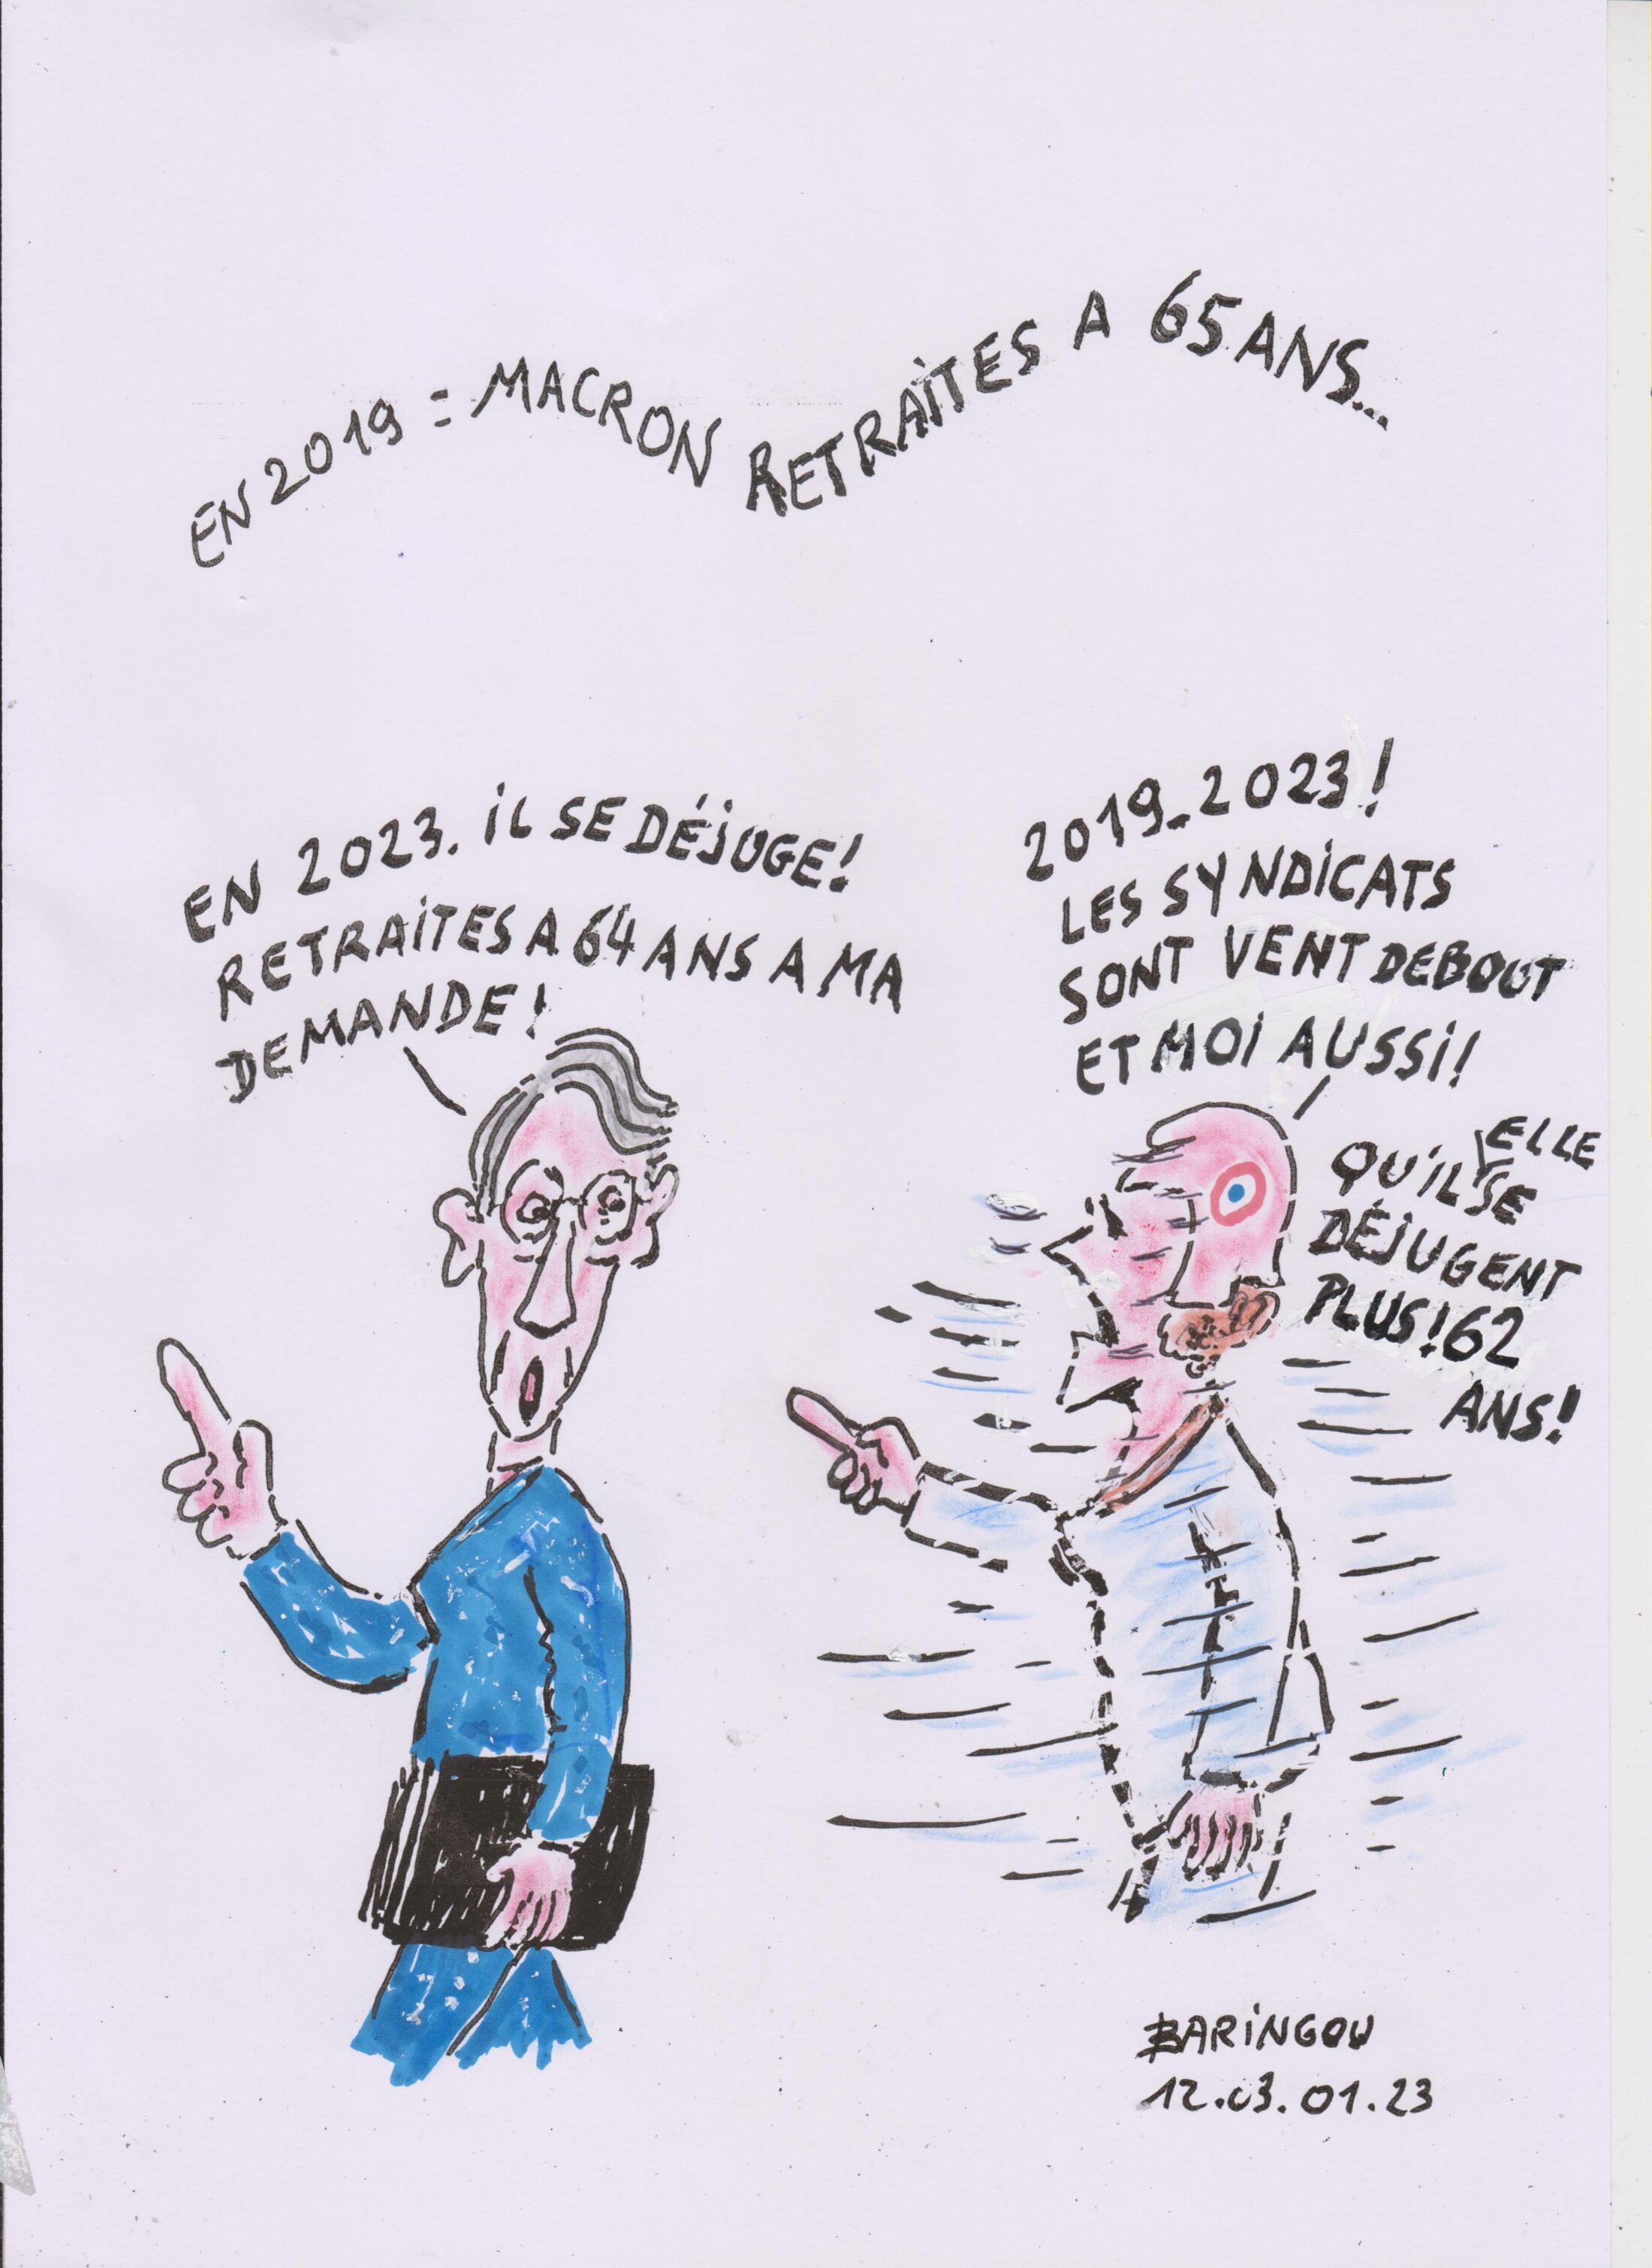 EN 2019 = MACRON RETRAITES A 65 ANS...
EN 2023. IL SE DÉJUGE!
RETRAITES A 64 ANS A MA
DEMANDE!
2019_2023!
LES SYNDICATS
SONT VENT DEBOUT
ET MOI AUSSI!
ELLE
QU'IL SE
DÉJUGENT
PLUS! 62
ANS!
BARINGOU
12.03.01.23